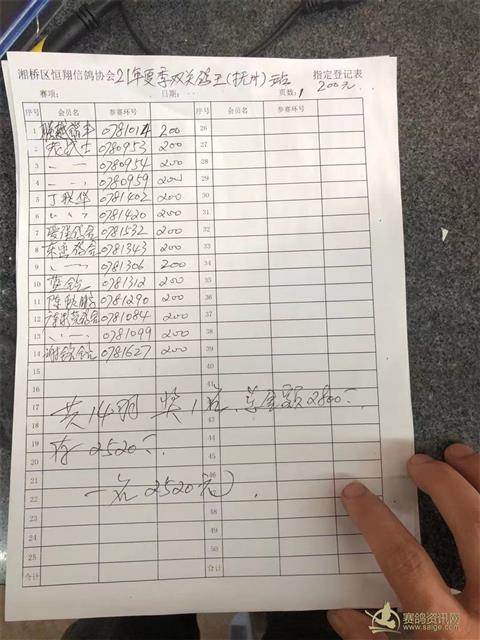 湘桥区恒翔信鸽协会21年夏季双关鸽王(抚州)站 指定登记表
赛项: 日期: 页数:1 200元
序号 会员名 参赛环号 序号 会员名 参赛环号
1 0781014 200 26
2 老战士 0780953 200 27
3 〃 0780954 200 28
4 〃 0780959 200 29
5 丁联华 0781402 200 30
6 〃 0781420 200 31
7 0781532 200 32
8 0781343 200 33
9 〃 0781306 200 34
10 0781312 200 35
11 0781290 200 36
12 0781084 200 37
13 〃 0781099 200 38
14 0781627 200 39
15 40
16
17 共14羽 奖1名、总金额2800元
18 43
19 存2520元. 44
20 45
21 46
22 一名2520元)
23 48
24 49
25 50
合计 合计
赛鸽资讯网
www.saige.com